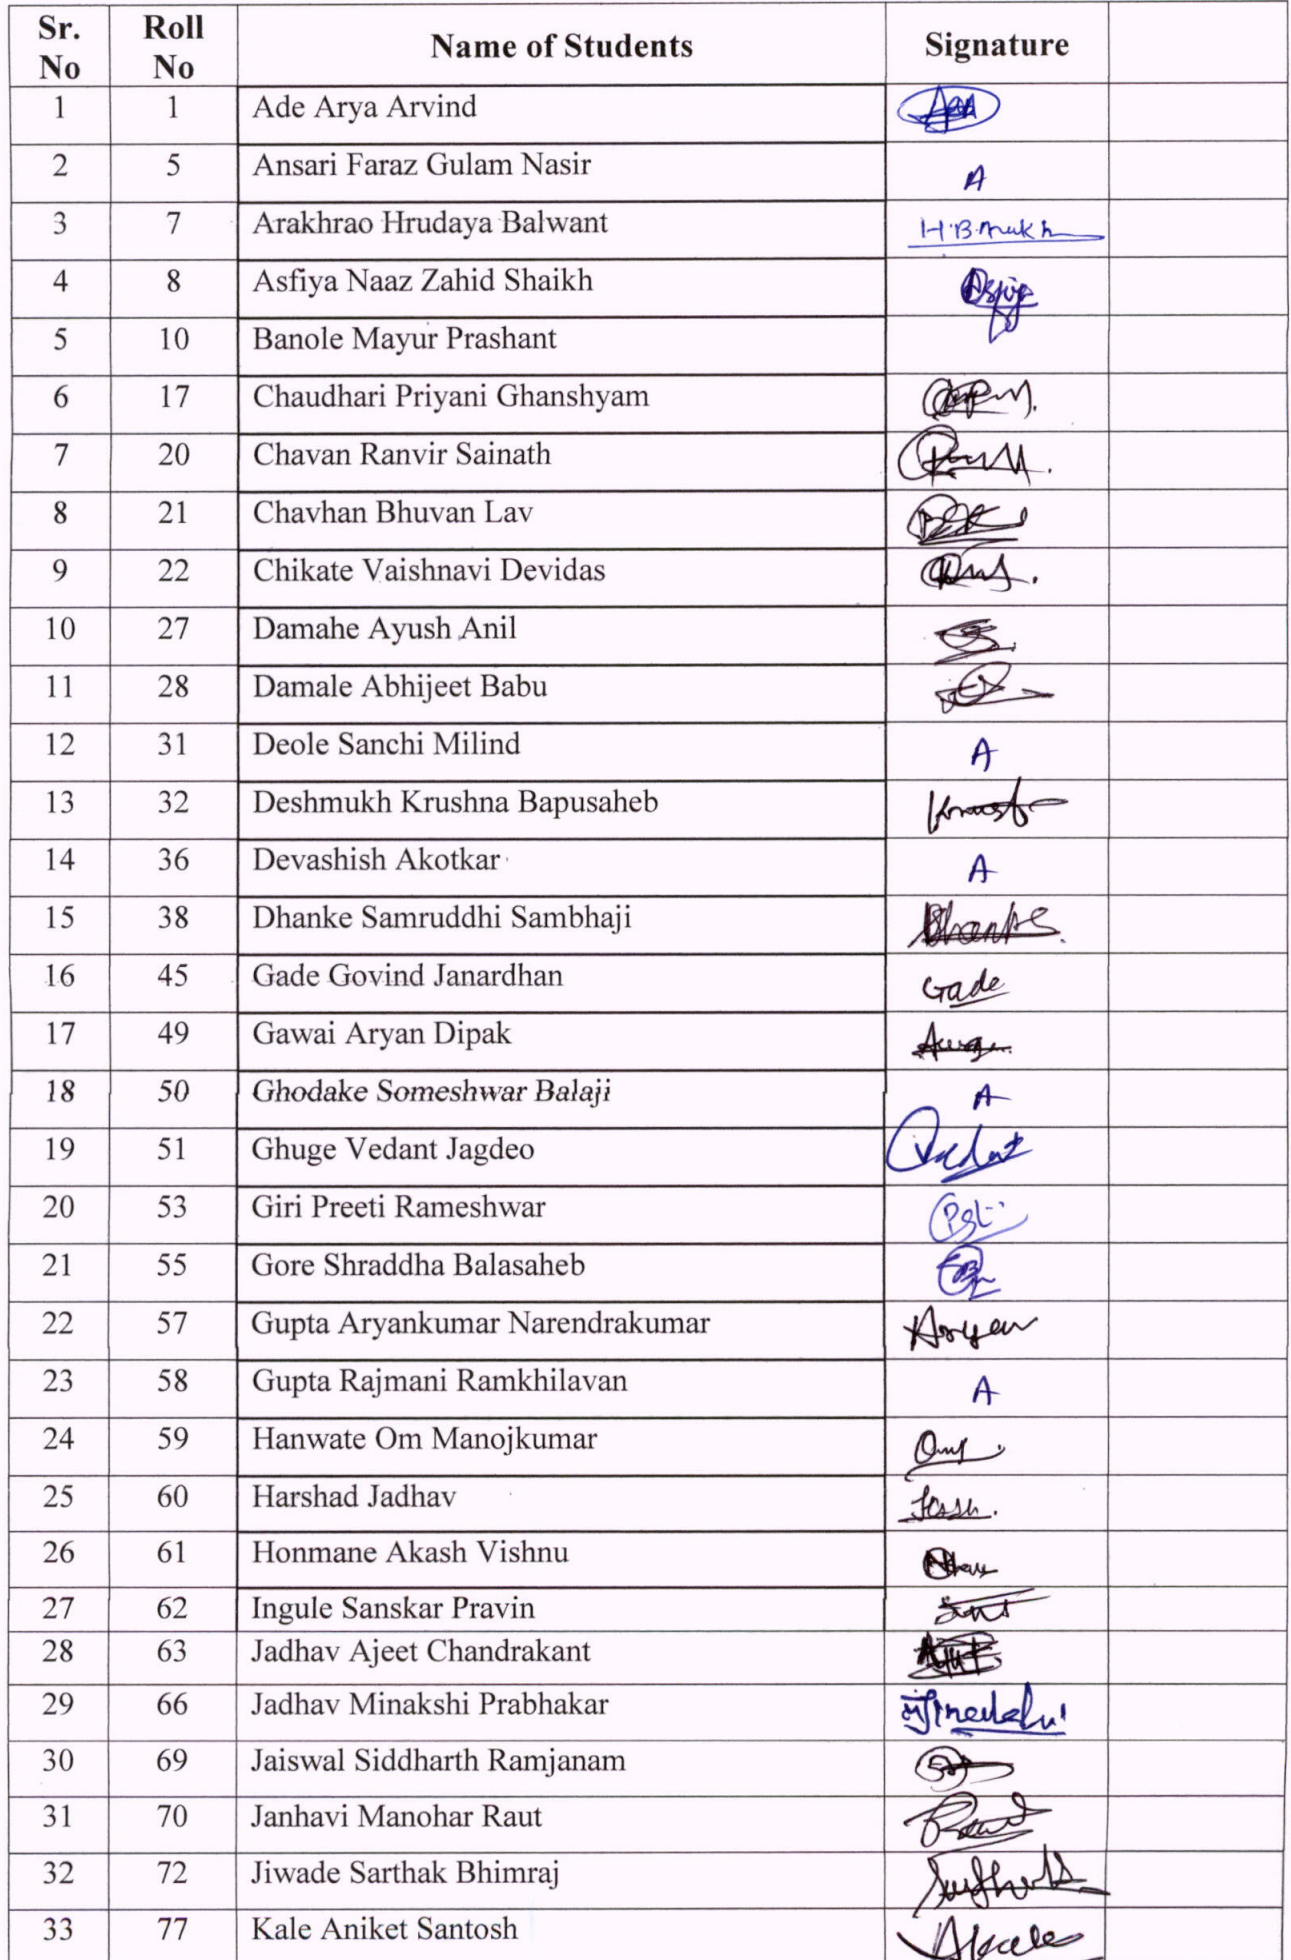 Sr. No Roll No Name of Students Signature
1 1 Ade Arya Arvind
2 5 Ansari Faraz Gulam Nasir A
3 7 Arakhrao Hrudaya Balwant
4 8 Asfiya Naaz Zahid Shaikh
5 10 Banole Mayur Prashant
6 17 Chaudhari Priyani Ghanshyam
7 20 Chavan Ranvir Sainath
8 21 Chavhan Bhuvan Lav
9 22 Chikate Vaishnavi Devidas
10 27 Damahe Ayush Anil
11 28 Damale Abhijeet Babu
12 31 Deole Sanchi Milind A
13 32 Deshmukh Krushna Bapusaheb
14 36 Devashish Akotkar A
15 38 Dhanke Samruddhi Sambhaji
16 45 Gade Govind Janardhan Gade
17 49 Gawai Aryan Dipak
18 50 Ghodake Someshwar Balaji A
19 51 Ghuge Vedant Jagdeo
20 53 Giri Preeti Rameshwar
21 55 Gore Shraddha Balasaheb
22 57 Gupta Aryankumar Narendrakumar Aryan
23 58 Gupta Rajmani Ramkhilavan A
24 59 Hanwate Om Manojkumar
25 60 Harshad Jadhav
26 61 Honmane Akash Vishnu
27 62 Ingule Sanskar Pravin
28 63 Jadhav Ajeet Chandrakant
29 66 Jadhav Minakshi Prabhakar
30 69 Jaiswal Siddharth Ramjanam
31 70 Janhavi Manohar Raut
32 72 Jiwade Sarthak Bhimraj
33 77 Kale Aniket Santosh